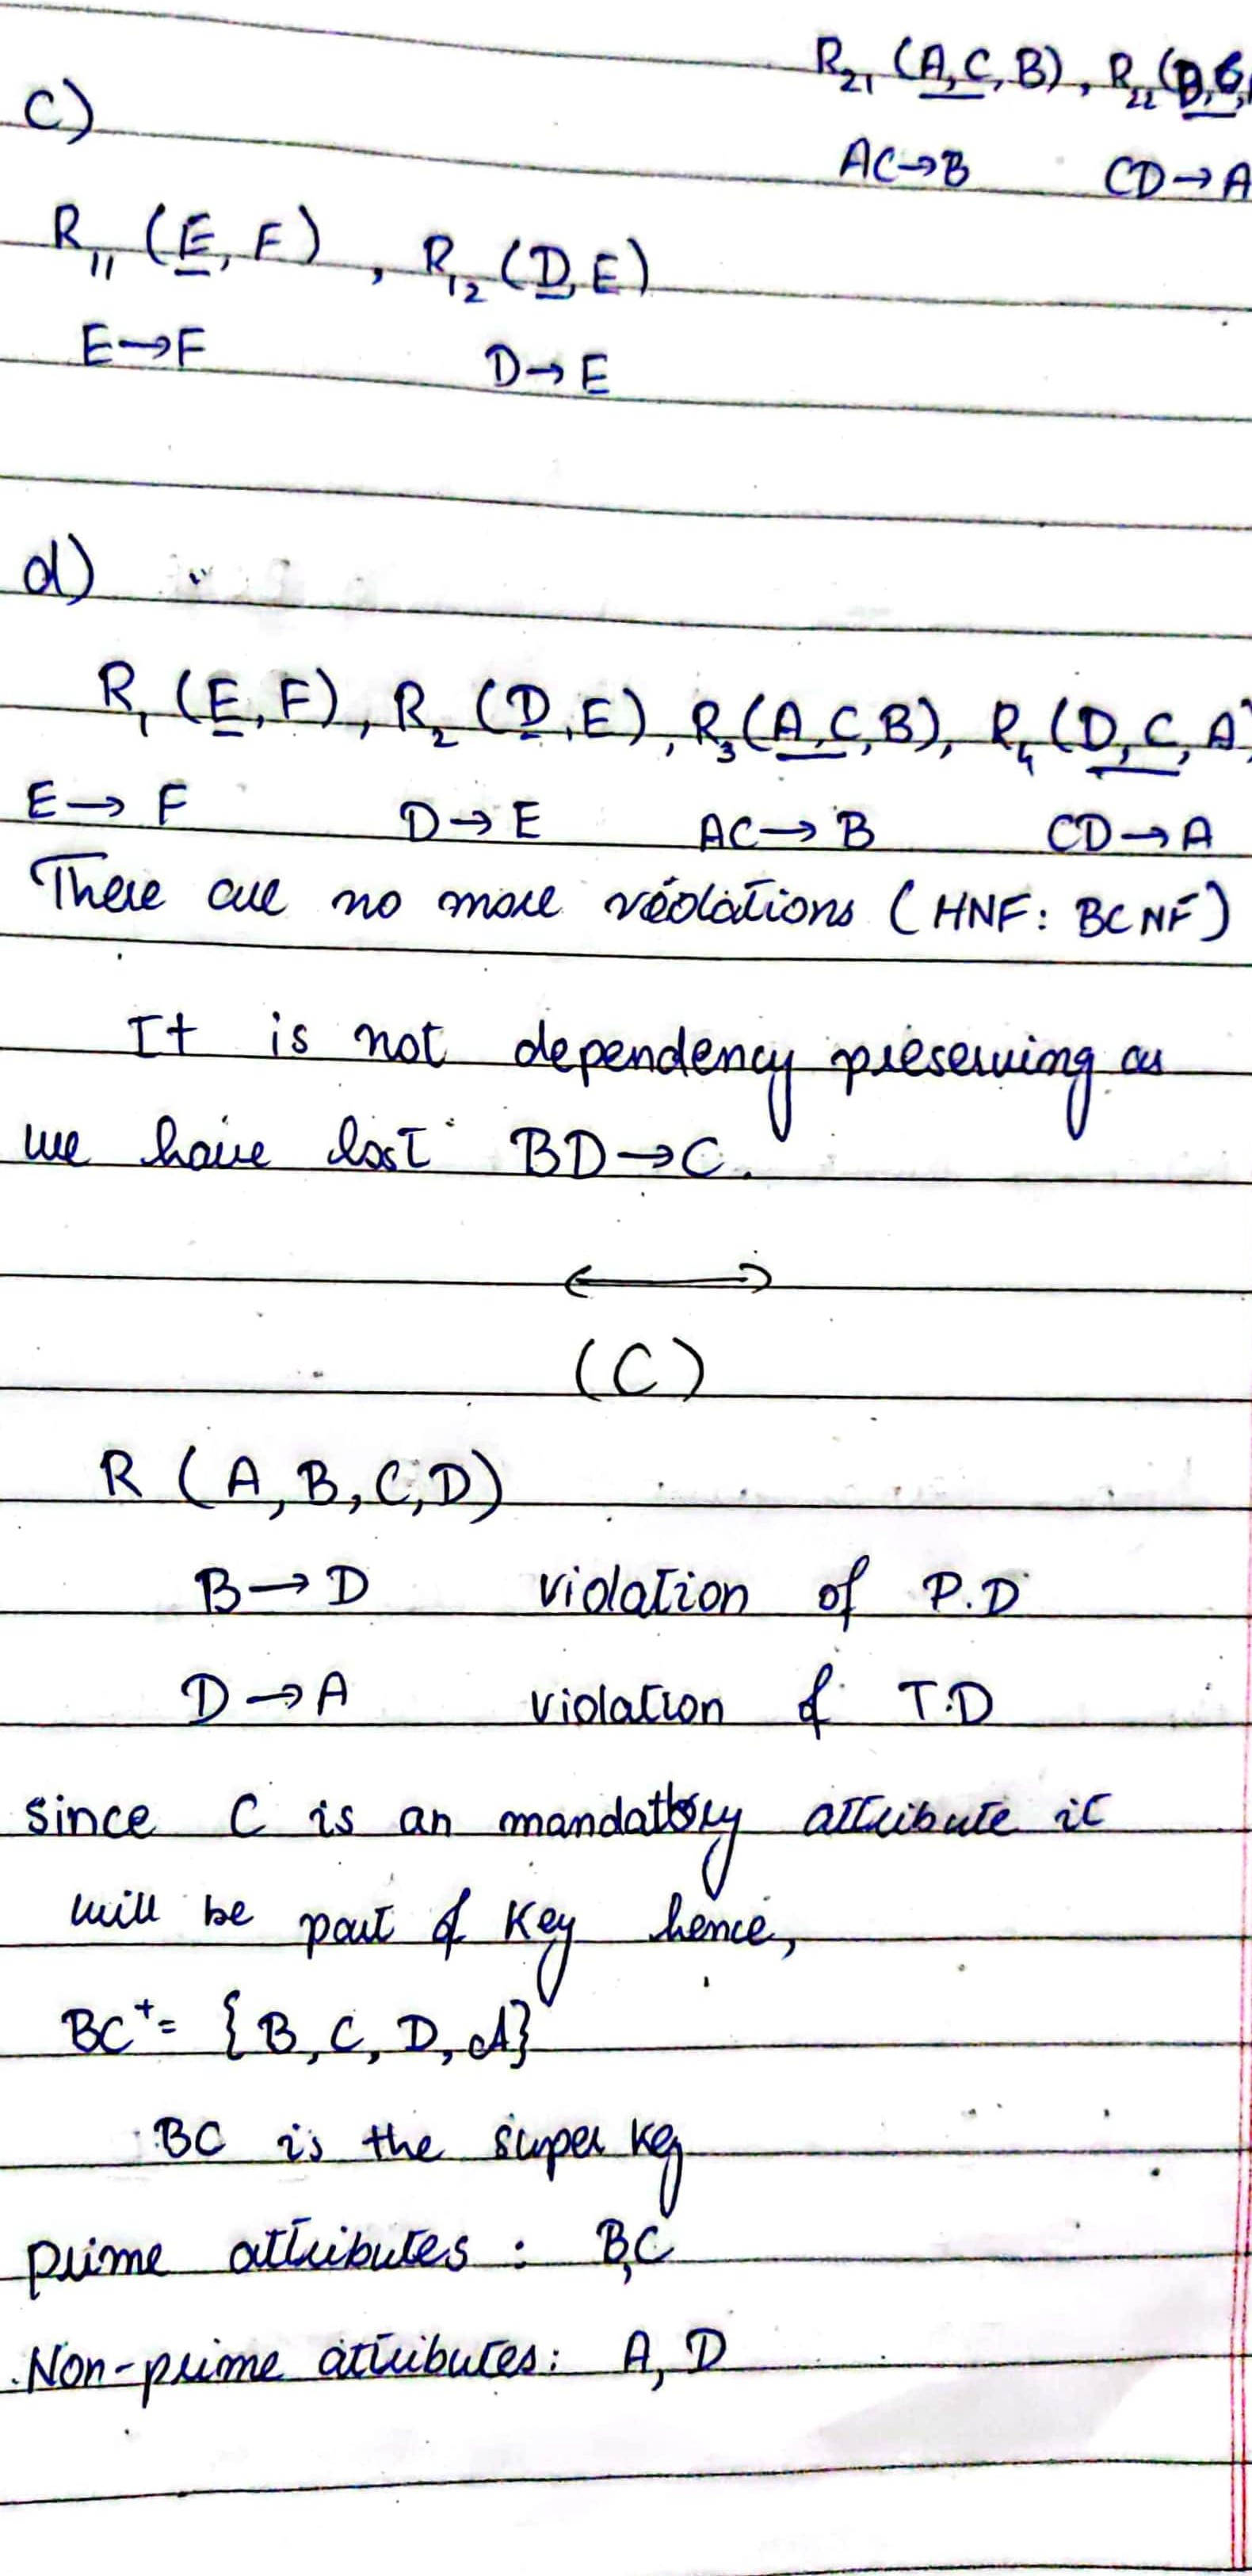 R21 (A,C,B), R22 (D,C,
C)
AC→B CD→A
R11 (E,F), R12 (D,E)
E→F D→E
d)
R1 (E,F), R2 (D,E), R3 (A,C,B), R4 (D,C,A)
E→F D→E AC→B CD→A
There are no more violations (HNF: BCNF)
It is not dependency preserving as
we have lost BD→C.
(C)
R (A,B,C,D)
B→D violation of P.D
D→A violation of T.D
since C is an mandatory attribute it
will be part of Key hence,
BC+= {B,C,D,A}
BC is the super key
prime attributes : B,C
Non-prime attributes: A,D